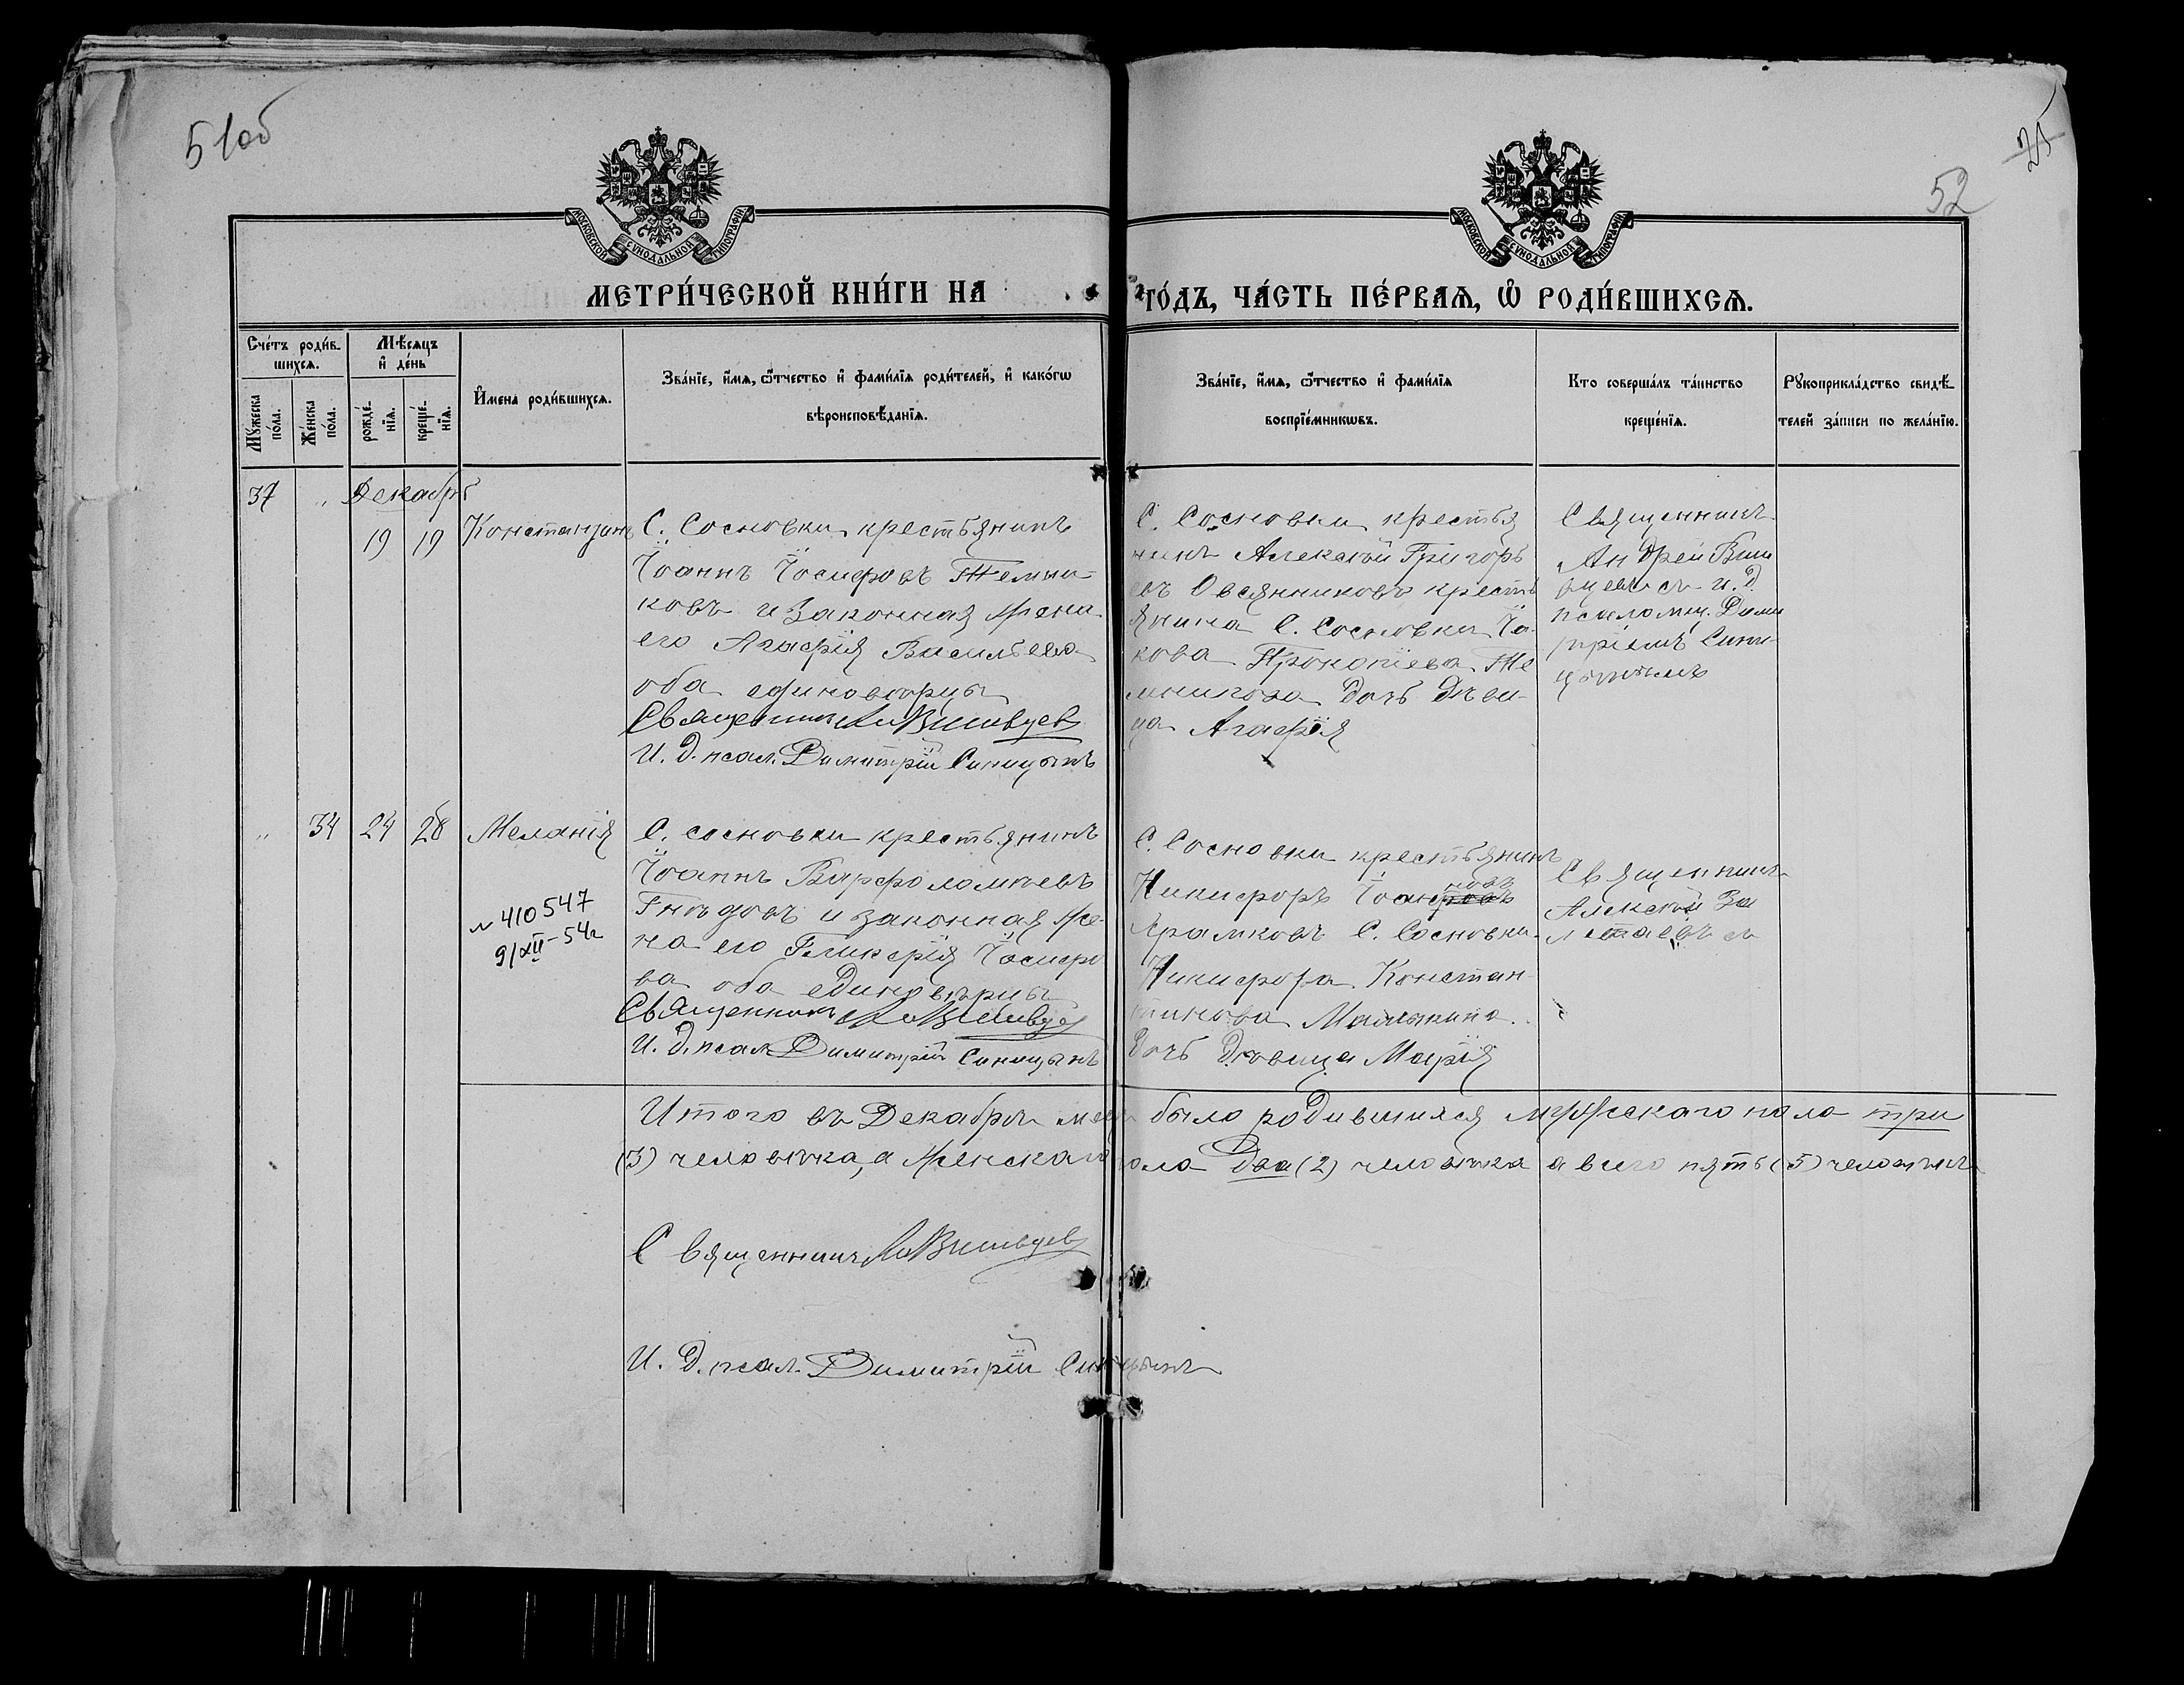 51об
52
25
МОСКОВСКОЙ СѴНОДАЛЬНОЙ ТИПОГРАФІИ
МОСКОВСКОЙ СѴНОДАЛЬНОЙ ТИПОГРАФІИ
МЕТРИ́ЧЕСКОЙ КНИ́ГИ НА
ГО́ДЪ, ЧА́СТЬ ПЕ́РВАѦ, Ѽ РОДИ́ВШИХСѦ.
Сче́тъ роди́в-
шихсѧ.
Мꙋжеска по́ла.
Же́нска по́ла.
Мѣ́сѧцъ
и҆ де́нь
рожде́-
нїѧ.
креще́-
нїѧ.
И҆мена роди́вшихсѧ.
Зва́нїе, и҆́мѧ, ѻ҆́тчество и҆ фами́лїѧ роди́телей, и҆ како́гѡ
вѣроисповѣ́данїѧ.
Зва́нїе, и҆́мѧ, ѻ҆́тчество и҆ фами́лїѧ
воспрїе́мникѡвъ.
Кто соверша́лъ та́инство
креще́нїѧ.
Рꙋкоприкла́дство свидѣ́-
телей за́писи по жела́нїю.
37 " Декабрь
19 19 Константинъ
С. Сосновки крестьянинъ
Іоаннъ Іосифовъ Темни-
ковъ и законная жена
его Агафія Васильева
оба единоверцы
Священникъ Ан Вишвцев
И. д. псал. Димитрій Синицынъ
С. Сосновки крестья
нинъ Алексій Григорь
евъ Овсянниковъ крестъ
янина С. Сосновки Іа-
кова Прокопіева Те
мникова дочь деви-
ца Агафія
Священникъ
Андрей Виш
вцевъ съ и. д.
псаломщ. Дими
тріемъ Сини-
цынымъ
" 34 24 28 Меланія
N 410547
9/XII-54г
С. Сосновки крестьянинъ
Іоаннъ Варфоломѣевъ
Гнѣдовъ и законная же-
на его Гликерія Іосифо
ва оба единовѣрцы
Священникъ Ан Вишвцев
И. д. псал Димитрій Синицынъ
С. Сосновки крестьянинъ
Никифоръ Іоанновъ
Храмковъ С. Сосновки
Никифора Констан-
тинова Малыкина
дочь Девица Марія
Священникъ
Алексій За
летаевъ съ
Итого въ Декабрѣ мсцѣ было родившихся мужскаго пола три
(3) человѣка, а женскаго пола два (2) человѣка а всего пять (5) человѣкъ
Священникъ Ан Вишвцев
И. д. псал. Димитрій Синицынъ